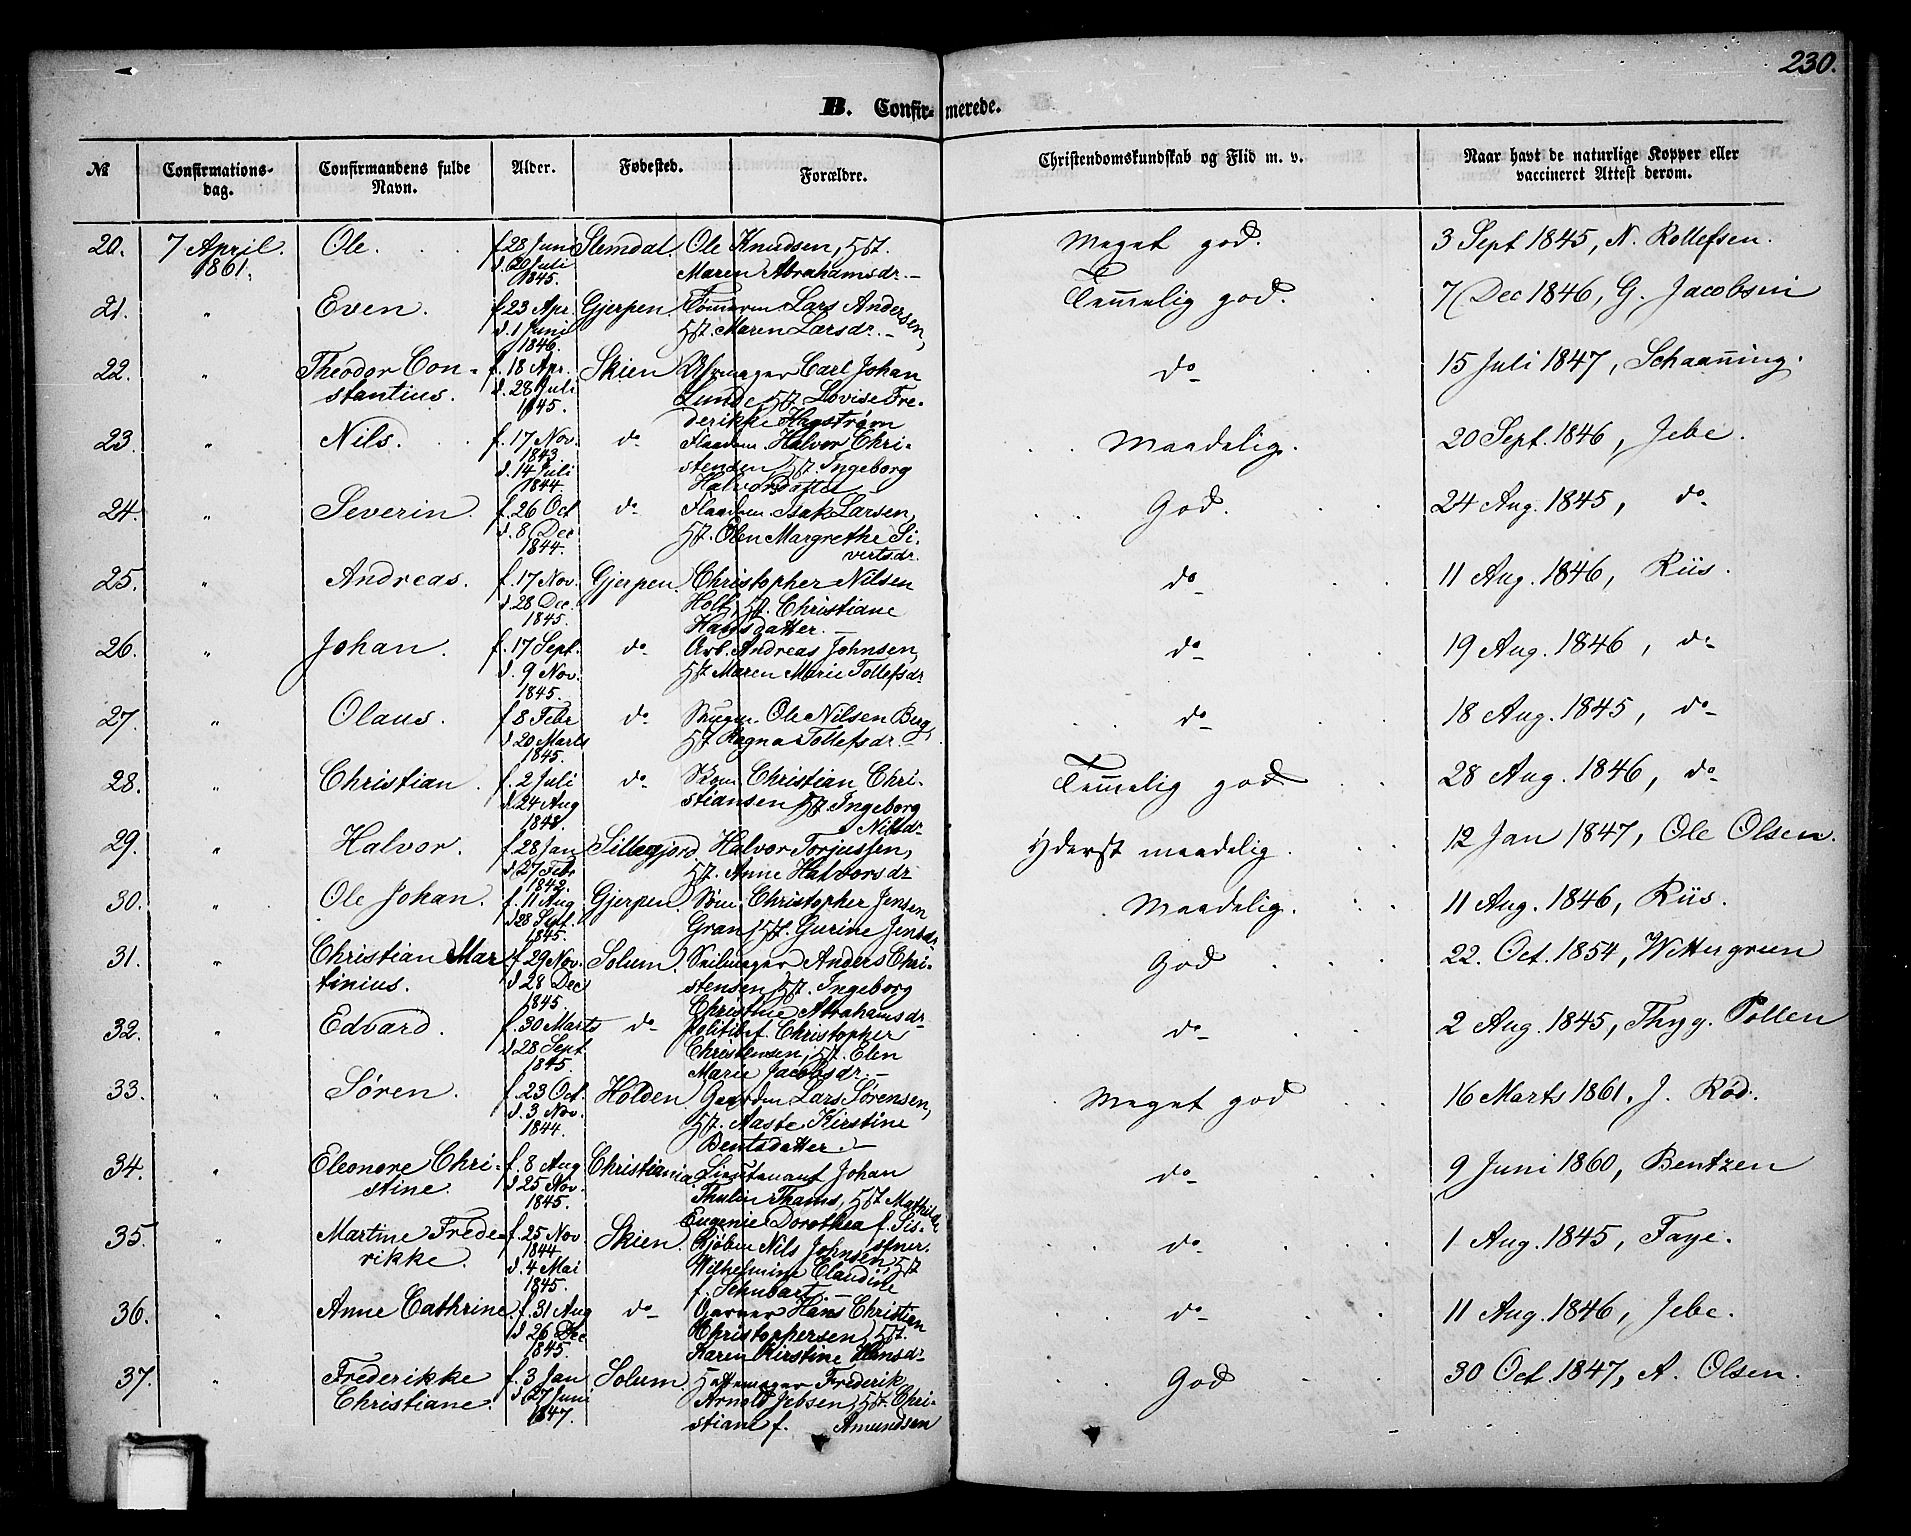 230.
B. Confirmerede.
№ Confirmations-dag. Confirmandens fulde Navn. Alder. Fødested. Forældre. Christendomskundskab og Flid m. v. Naar havt de naturlige Kopper eller vaccineret Attest derom.
20. 7 April. Ole. f 28 Juni Slemdal. Ole Knudsen, Hst. Meget god. 3 Sept 1845, N. Rollefsen.
1861. d. 20 Juli Maren Abrahamsdr.
1845.
21. " Even. f 23 Apr. Gjerpen Tømmerm Lars Andersen, Temmelig god. 7 Dec 1846, G. Jacobsen
d. 1 Juni Hst. Maren Larsdr.
1846.
22. " Theodor Con- f. 18 Apr. Skien Carl Johan do 15 Juli 1847, Schanning.
stantius. d. 28 Juli Lunde, Hst Lovise Fre-
1845. derikke Hagstrøm
23. " Nils. f. 17 Nov. do Halvor Chri- Maadelig. 20 Sept. 1846, Jebe.
1843 stensen, Hst. Ingeborg
d. 14 Juli Halvorsdatter
1844
24. " Severin. f. 26 Oct do Isak Larsen, God. 24 Aug. 1845, do
d. 8 Dec Hst. Olen Margrethe Si-
1844. vertsdr.
25. " Andreas. f. 17 Nov. Gjerpen. Christopher Nilsen do 11 Aug. 1846, Riis.
d 28 Dec. Holt, Hst. Christiane
1845. Hansdatter.
26. " Johan. f. 17 Sept. do Arb. Andreas Johnsen, do 19 Aug. 1846, do
d. 9 Nov. Hst Maren Marie Tollefsdr
1845.
27. " Olaus. f 8 Febr do Ole Nilsen Berg, do 18 Aug. 1845, do
d 20 Marts Hst Ragna Tollefsdr
1845.
28. " Christian. f. 2 Juli do Christian Chri- Temmelig god 28 Aug. 1846, do
d. 24 Aug stiansen Hst. Ingeborg
1848. Nilsdr
29. " Halvor. f. 28 Jan Sillegjord. Halvor Torjussen, Yderst maadelig. 12 Jan 1847, Ole Olsen.
d 27 Febr Hst. Anne Halvorsdr
1842.
30. " Ole Johan. f. 11 Aug Gjerpen. Christopher Jensen Maadelig. 11 Aug. 1846, Riis.
d 28 Sept. Gran, Hst. Gurine Jensdr
1845.
31. " Christian Mar f. 29 Nov. Solum. Seilmager Anders Chri- God 22. Oct. 1854, Wettergreen
tinius. d 28 Dec stensen, Hst. Ingeborg
1845. Christine Abrahamsdr
32. " Edvard. f. 30 Marts do Politibet. Christopher do 2 Aug. 1845, Thyg. Pollen
d 28 Sept Christensen, Hst. Elen
1845. Marie Jacobsdr.
33. " Søren. f. 23 Oct. Holden Lars Sørensen, Meget god 16 Marts 1861, J. Rød.
d. 3 Nov. Hst. Aaste Kirstine
1844. Bentsdatter.
34. " Eleonore Chri- f. 8 Aug Christiania. Lieutenant Johan do 9 Juni 1860, Bentzen
stine. d 25 Nov. Thulin Thams, Hst Mathilde
1845. Eugenie Dorothea f. Sis-
35. " Martine Frede- f. 25 Nov Skien. Kjøbm Nils Johnsen, stner. do 1 Aug. 1845, Faye.
rikke. 1844 Wilhelmine Claudine, Hst
d. 4 Mai f. Schubart.
1845.
36. " Anne Cathrine. f. 31 Aug do Garver Hans Christian do 11 Aug. 1846, Jebe.
d 26 Dec Christophersen, Hst.
1845. Karen Kirstine Hansdr
37. " Frederikke f. 3 Jan Solum. Frederik God 30 Oct. 1847, A. Olsen.
Christiane. d 27 Juni Arnold Jebsen, Hst. Chri-
1847. stiane f. Amundsen